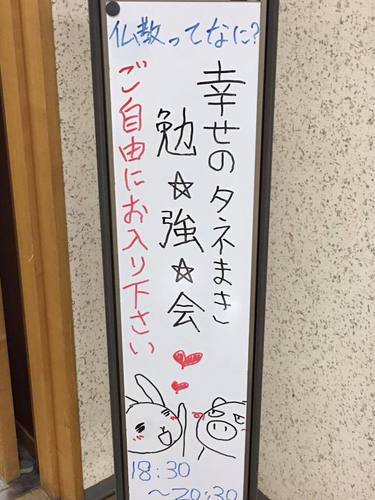 仏教ってなに？
幸せのタネまき
勉☆強☆会
ご自由にお入り下さい
18:30
～20:30